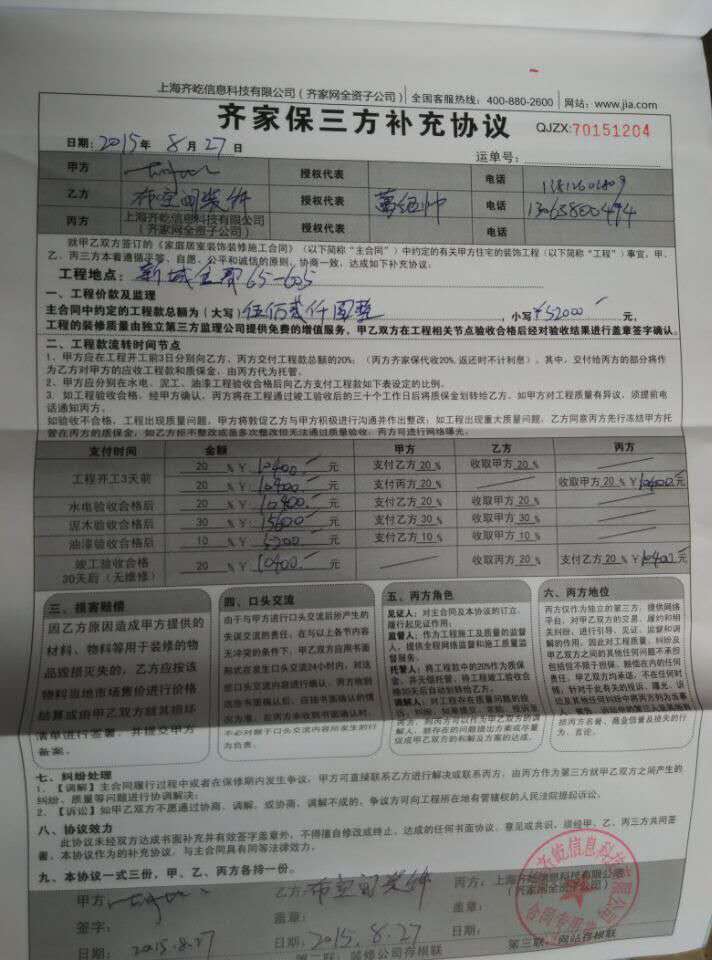 上海齐屹信息科技有限公司(齐家网全资子公司) 全国客服热线：400-880-2600 网站：www.jia.com
齐家保三方补充协议 QJZX:70151204
日期：2015年8月27日 运单号：
甲方 授权代表 电话
乙方 布空间装饰 授权代表 电话
丙方 上海齐屹信息科技有限公司(齐家网全资子公司) 授权代表
就甲乙双方签订的《家庭居室装饰装修施工合同》（以下简称“主合同”）中约定的有关甲方住宅的装饰工程（以下简称“工程”）事宜，甲、
乙、丙三方本着遵循平等、自愿、公平和诚信的原则，协商一致，达成如下补充协议。
工程地点：新城 65-605
一、工程价款及监理
主合同中约定的工程款总额为（大写）伍佰贰仟圆整，小写¥52000.-元，
工程的装修质量由独立第三方监理公司提供免费的增值服务，甲乙双方在工程相关节点验收合格后经对验收结果进行盖章签字确认。
二、工程款流转时间节点
1、甲方应在工程开工前3日分别向乙方、丙方交付工程款总额的20%；（丙方齐家保代收20%，返还时不计利息）。其中，交付给丙方的部分将作
为乙方对甲方的应收工程款和质保金，由丙方代为托管。
2、甲方应分别在水电、泥工、油漆工程验收合格后向乙方支付工程款如下表设定的比例。
3、如工程验收合格，经甲方确认，丙方将在工程通过竣工验收后的三十个工作日后将质保金划转给乙方。如甲方对工程质量有异议，须提前电
话通知丙方。
如验收不合格，工程出现质量问题，甲方将敦促乙方与甲方积极进行沟通并作出整改；如工程出现重大质量问题，乙方同意丙方先行冻结甲方托
管在丙方的质保金，如乙方拒不整改或是多次整改但无法通过质量验收，丙方可进行网络曝光。
支付时间 金额 甲方 乙方 丙方
工程开工3天前 20 % ¥ 10400.- 元 支付乙方 20 % 收取甲方 20 %
20 % ¥ 10400.- 元 支付丙方 20 % 收取甲方 20 % ¥10400.元
水电验收合格后 20 % ¥ 10400.- 元 支付乙方 20 % 收取甲方 20 %
泥木验收合格后 30 % ¥ 15600.- 元 支付乙方 30 % 收取甲方 30 %
油漆验收合格后 10 % ¥ 5200.- 元 支付乙方 10 % 收取甲方 10 %
竣工验收合格30天后（无维修） 20 % ¥ 10400.- 元 收取丙方 20 % 支付乙方 20 % ¥10400.元
三、损害赔偿
因乙方原因造成甲方提供的
材料、物料等用于装修的物
品毁损灭失的，乙方应按该
物料当地市场售价进行价格
结算或由甲乙双方就其损坏
清单进行签署，并提交甲方
备案。
四、口头交流
由于与甲方进行口头交流后所产生的
失误交流的责任，在与以上各节内容
无冲突的条件下，甲乙双方应用书面
形式在发生口头交流24小时内，对这
些口头交流内容进行确认。
为负责。
五、丙方角色
见证人：对主合同及本协议的订立、
履行起见证作用；
监督人：作为工程施工及质量的监督
人，提供全程网络监督和施工质量监
督服务。
托管人：将工程款中的20%作为质保
金，并无偿托管，工程竣工验收合
格30日后自动划转给乙方。
六、丙方地位
丙方仅作为独立的第三方，提供网络
平台，对甲乙双方的交易、履约和明
关纠纷，进行引导、见证、监督和调
解的作用。因此对工程质量、纠纷及
甲乙双方之间的其他任何问题不承担
包括但不限于担保、赔偿在内的任何
责任。
七、纠纷处理
1、【调解】主合同履行过程中或者在保修期内发生争议，甲方可直接联系乙方进行解决或联系丙方，由丙方作为第三方就甲乙双方之间产生的
纠纷、质量等问题进行协调解决；
2、【诉讼】如甲乙双方不愿通过协商、调解，或协商、调解不成的，争议方可向工程所在地有管辖权的人民法院提起诉讼。
八、协议效力
此协议未经双方达成书面补充并有效签字盖章外，不得擅自修改或终止，达成的任何书面协议、意见或共识，须经甲、乙、丙三方共同签
署，本协议作为的补充协议，与主合同具有同等法律效力。
九、本协议一式三份，甲、乙、丙方各持一份。
甲方： 乙方：布空间装饰 丙方：上海齐屹信息科技有限公司(齐家网全资子公司)
签字： 盖章： 盖章：
日期：2015.8.27 日期：2015.8.27 日期：
第二联：装修公司存根联 第三联：网站存根联
合同专用章